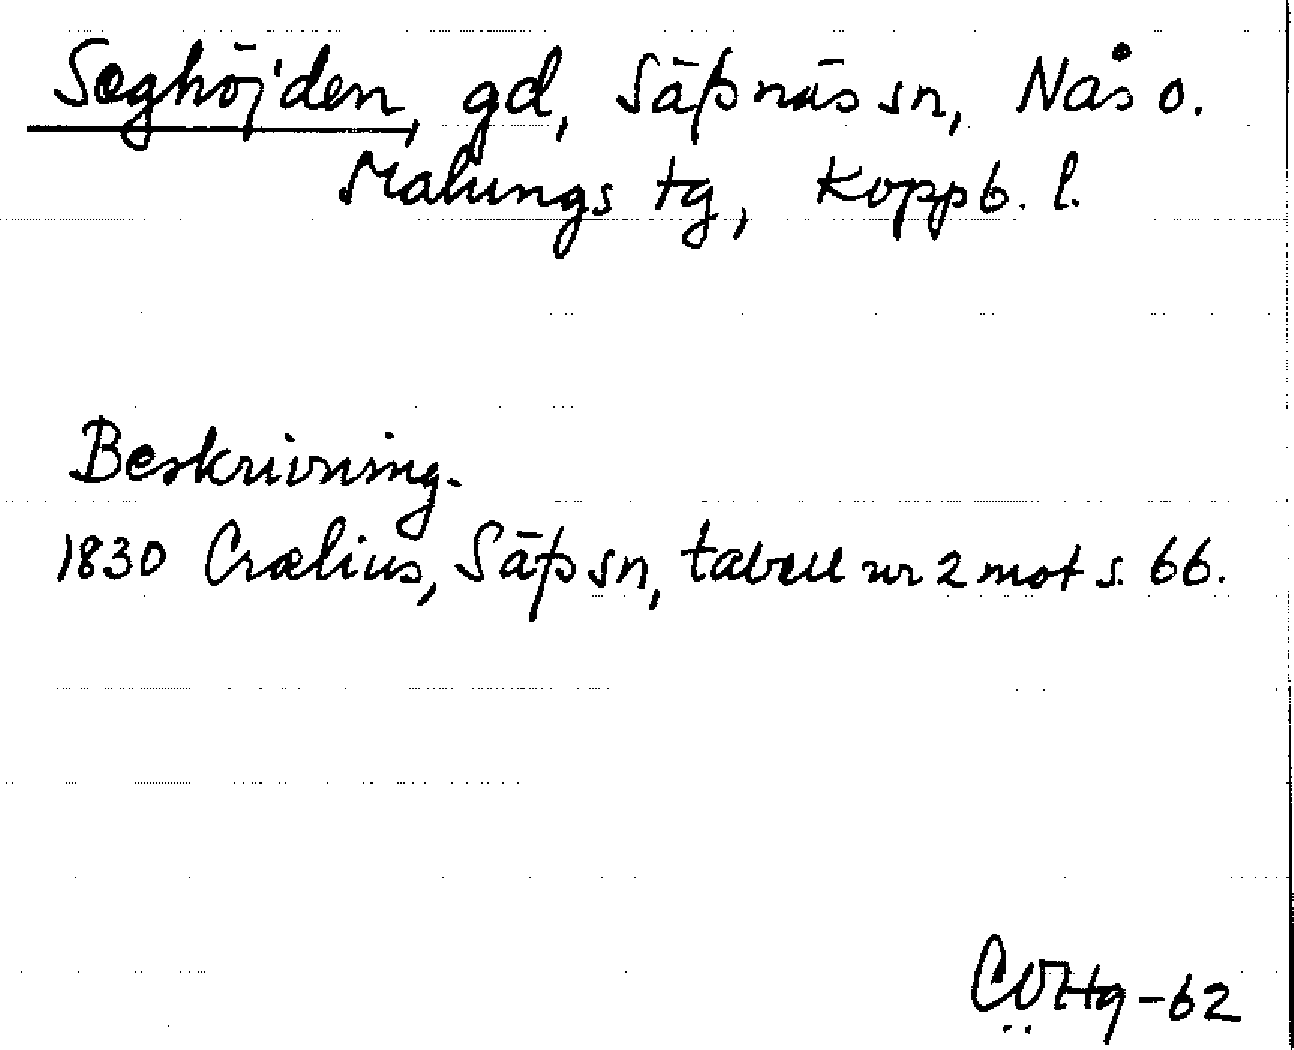 Seghöjden, gd, Säfsnäs sn, Nås o.
Malungs tg, Koppb. l.
Beskrivning.
1830 Crælius, Säfs sn, tabell nr 2 mot s. 66.